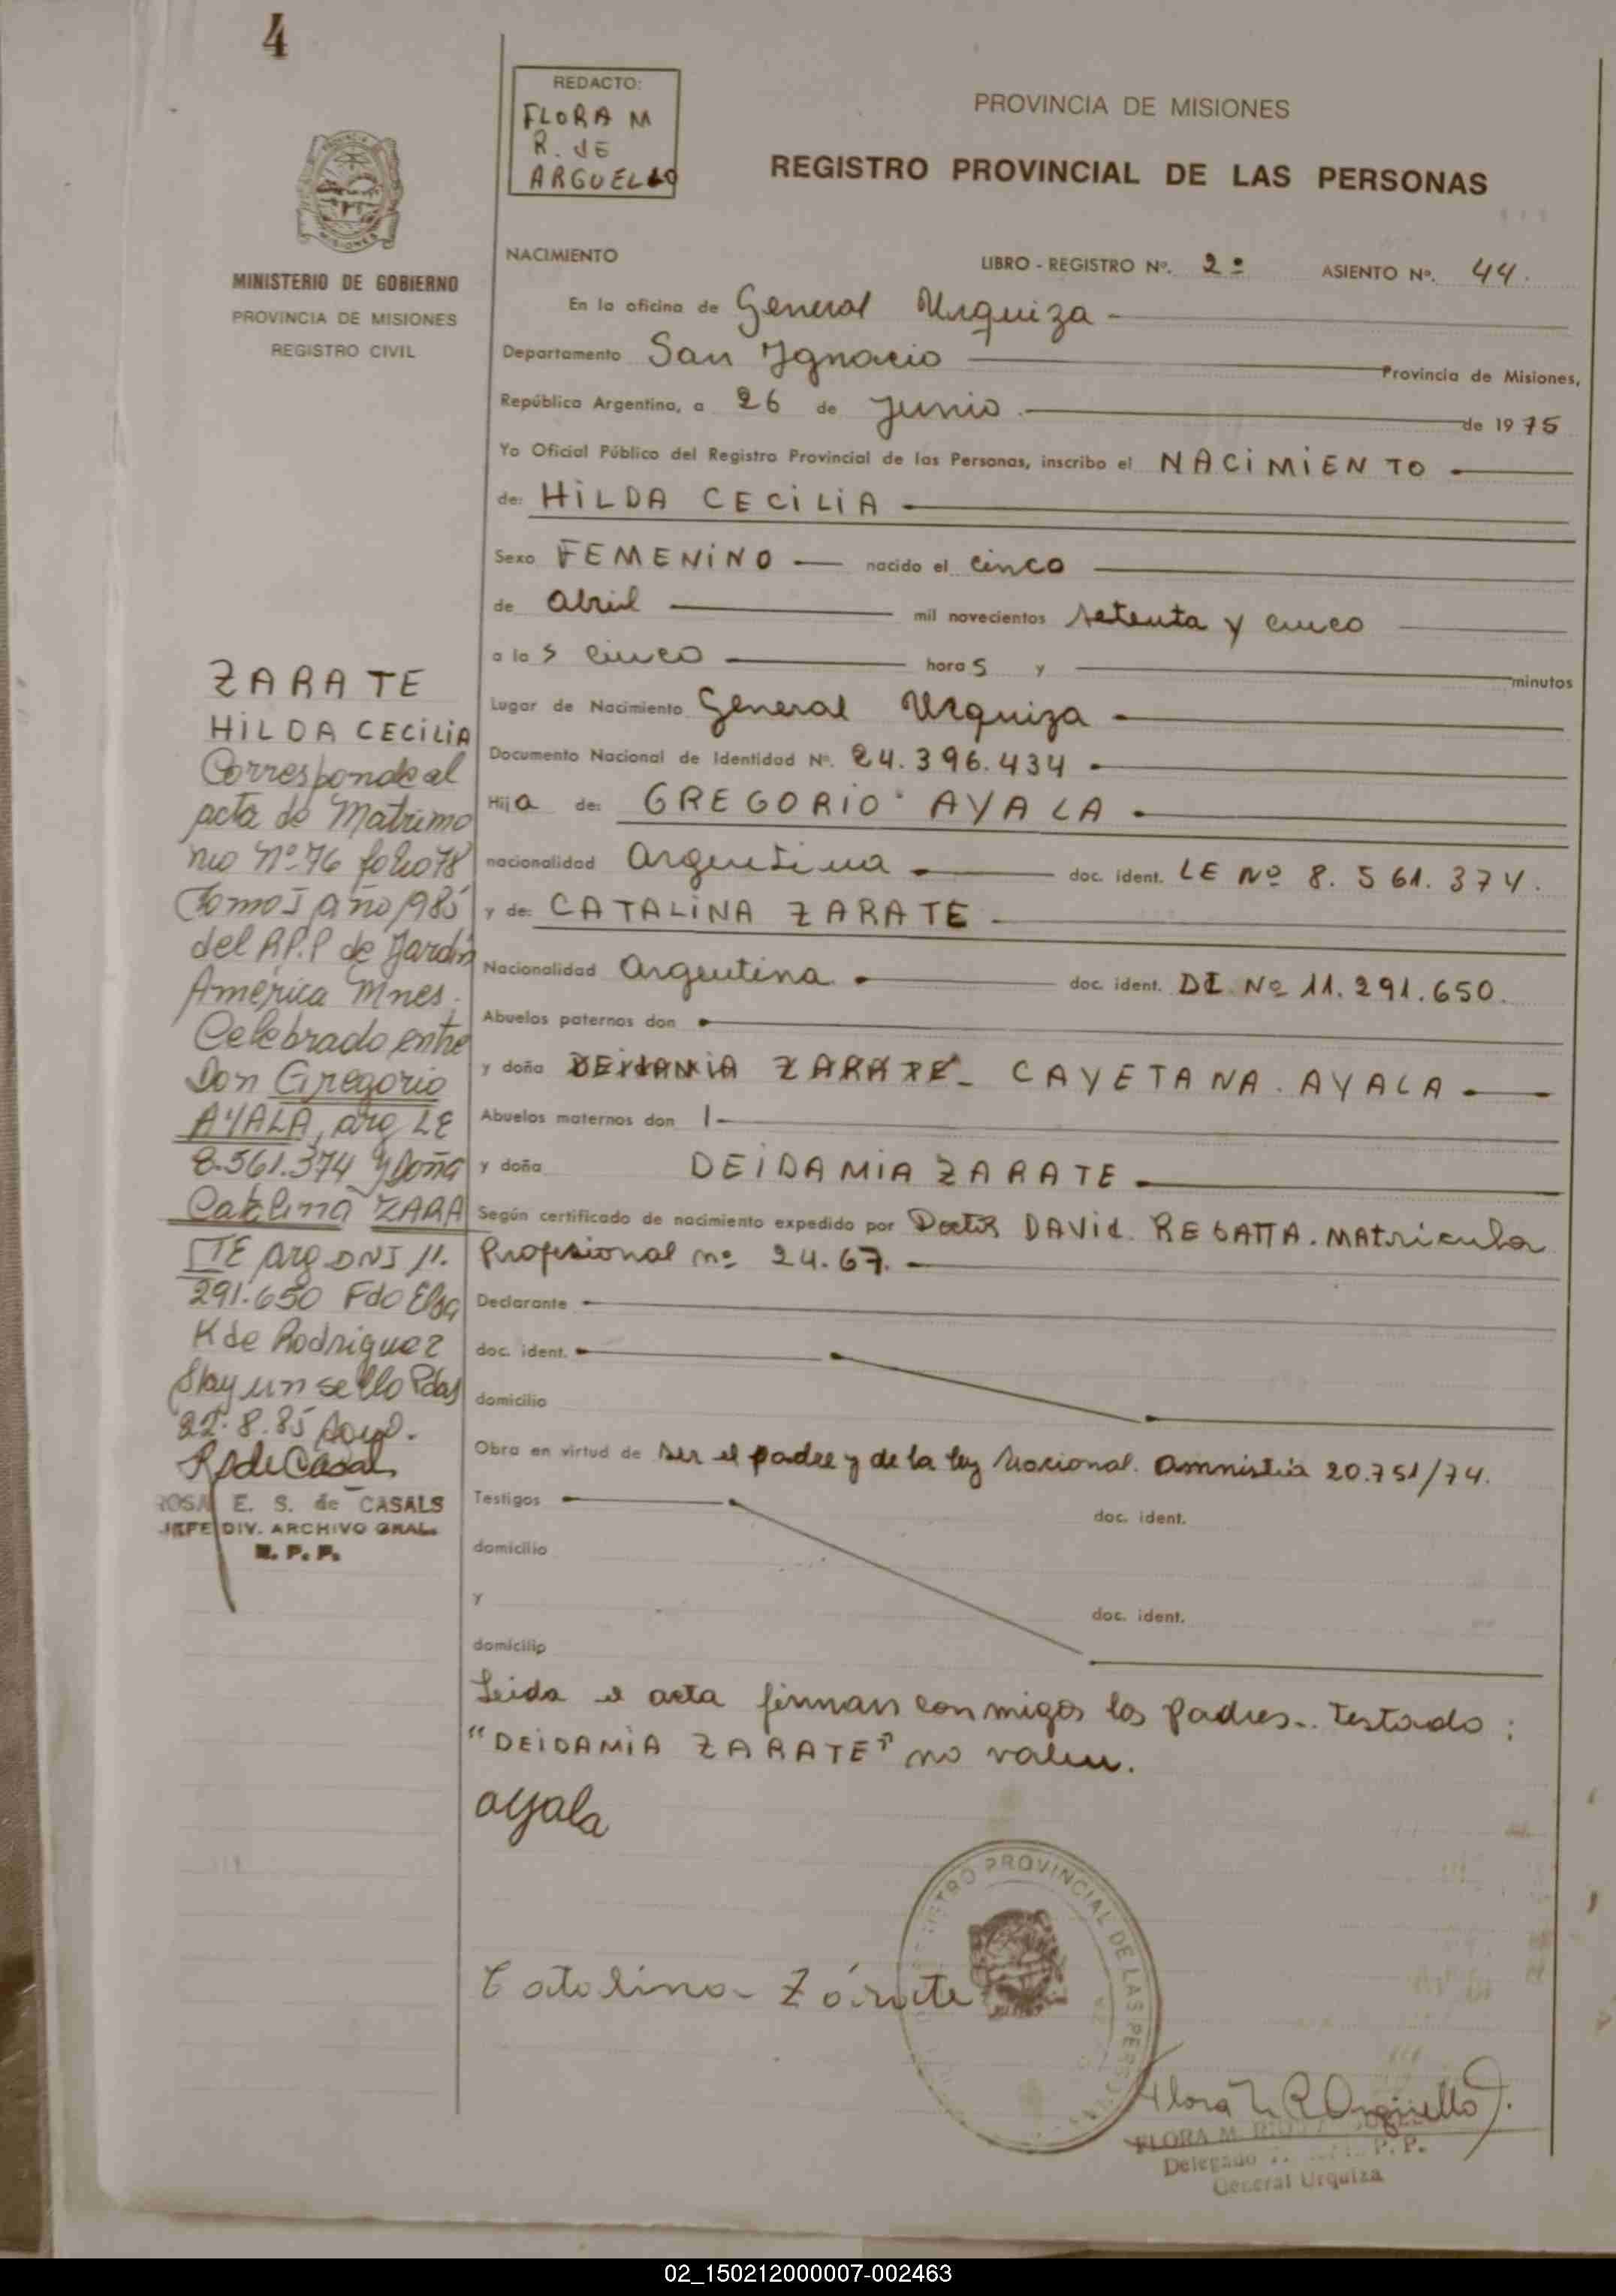 4
REDACTO:
FLORA M
R. de
ARGUELLO
PROVINCIA DE MISIONES
REGISTRO PROVINCIAL DE LAS PERSONAS
MINISTERIO DE GOBIERNO
PROVINCIA DE MISIONES
REGISTRO CIVIL
NACIMIENTO LIBRO - REGISTRO Nº. 2º ASIENTO Nº. 44.
En la oficina de General Urquiza
Departamento San Ignacio Provincia de Misiones,
República Argentina, a 26 de Junio de 1975
Yo Oficial Público del Registro Provincial de las Personas, inscribo el NACIMIENTO
de: HILDA CECILIA
Sexo FEMENINO nacido el cinco
de abril mil novecientos setenta y cinco
a las cinco horas y minutos
Lugar de Nacimiento General Urquiza
Documento Nacional de Identidad Nº. 24.396.434
Hija de: GREGORIO AYALA
nacionalidad argentina doc. ident. LE Nº 8.561.374.
y de: CATALINA ZARATE
Nacionalidad argentina doc. ident. DI Nº 11.291.650.
Abuelos paternos don
y doña DEIDAMIA ZARATE CAYETANA AYALA
Abuelos maternos don
y doña DEIDAMIA ZARATE
Según certificado de nacimiento expedido por Doctor DAVID REGATTA. Matricula
Profesional nº 24.67.
Declarante
doc. ident.
domicilio
Obra en virtud de ser el padre y de la ley Nacional amnistia 20.751/74.
Testigos doc. ident.
domicilio
y doc. ident.
domicilio
Leida el acta firman conmigo los padres. Testado:
"DEIDAMIA ZARATE" no valen.
ayala
Catalina Zárate
ZARATE
HILDA CECILIA
Corresponde al
acta de Matrimo
nio Nº 76 folio 78
Tomo I año 1985
del R.P.P de Jardin
América Mnes.
Celebrado entre
Don Gregorio
AYALA, arg LE
8.561.374 y Doña
Catalina ZARA
TE arg DNI 11.
291.650 Fdo Elsa
K de Rodriguez
Hay un sello Pdas
22.8.85
R S de Casals
ROSA E. S. de CASALS
JEFE DIV. ARCHIVO GRAL.
R. P. P.
REGISTRO PROVINCIAL DE LAS PERSONAS
Flora M R Arguello
FLORA M.
Delegado P. P.
General Urquiza
02_150212000007-002463